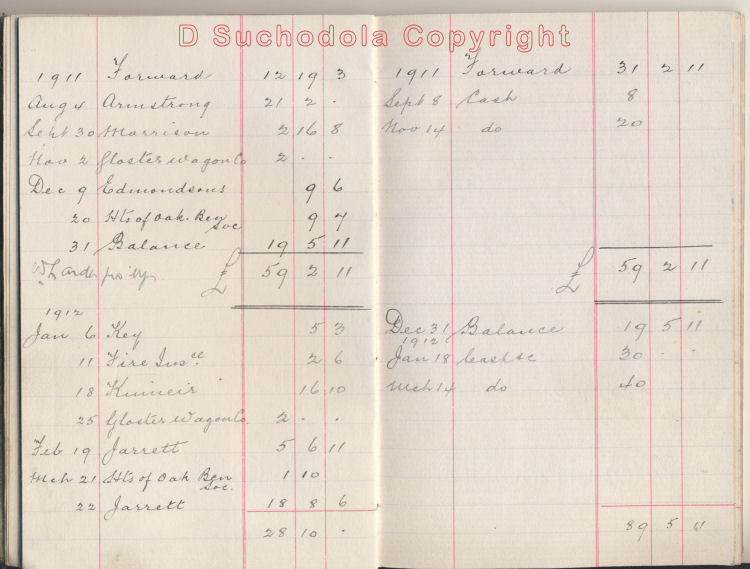 D Suchodola Copyright
1911 Forward 12 19 3
Aug 4 Armstrong 21 2 .
Sept 30 Morrison 2 16 8
Nov 2 Gloster Wagon Co 2 . .
Dec 9 Edmondsons 9 6
20 Hts of Oak. Ben Soc 9 7
31 Balance 19 5 11
£ 59 2 11
1912
Jan 6 Key 5 3
11 Fire Insce 2 6
18 16 10
25 Gloster Wagon Co. 2 . .
Feb 19 Jarrett 5 6 11
Mch 21 Hts of Oak Ben Soc. 1 10
22 Jarrett 18 8 6
28 10 .
1911 Forward 31 2 11
Sept 8 Cash 8
Nov 14 do 20
£ 59 2 11
Dec 31 Balance 19 5 11
1912
Jan 18 30 . .
Mch 14 do 40
89 5 11